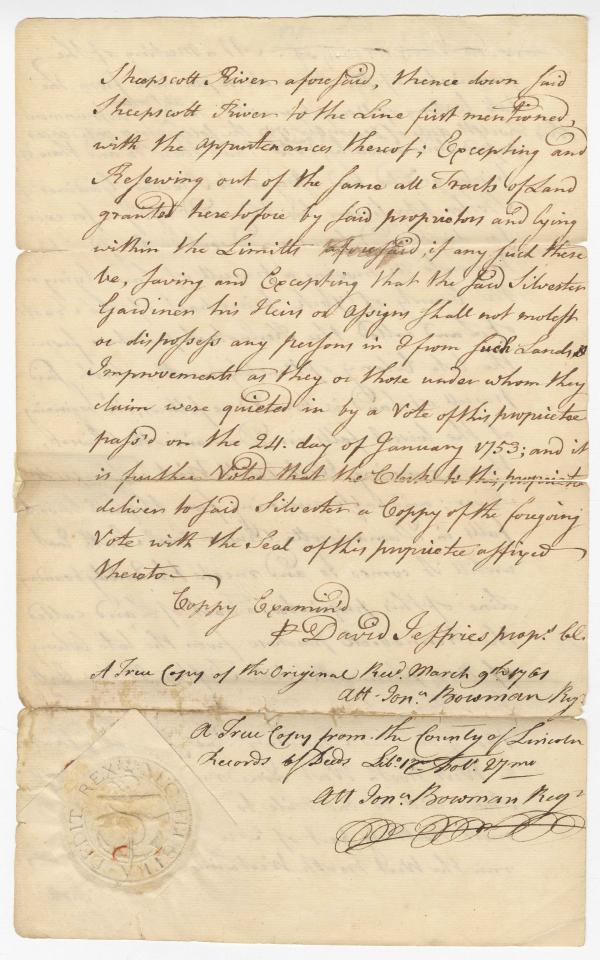 Sheepscott River aforesaid, thence down said
Sheepscott River to the Line first mentioned,
with the appurtenances thereof; Excepting and
Reserving out of the same all Tracts of Land
granted heretofore by said proprietors and lying
within the Limitts aforesaid, if any such there
be, saving and Excepting that the said Silvester
Gardiner his Heirs or assigns shall not molest
or dispossess any persons in & from such Lands &
Improvements as they or those under whom they
claim were quieted in by a Vote of this proprietee
pass'd on the 24. day of January 1753; and it
is further Voted that the Clerk to this proprietee
deliver to said Silvester a Coppy of the foregoing
Vote with the Seal of this proprietee affixed
thereto
Coppy Examin'd
₱ David Jeffries prop.s Cl.
A True Copy of the Original Recd. March 9th 1761
Att Jona Bowman Regr
A True Copy from the County of Lincoln
Records of Deeds Lib.o 1mo Fol. 27mo
Att Jona Bowman Regr
REX